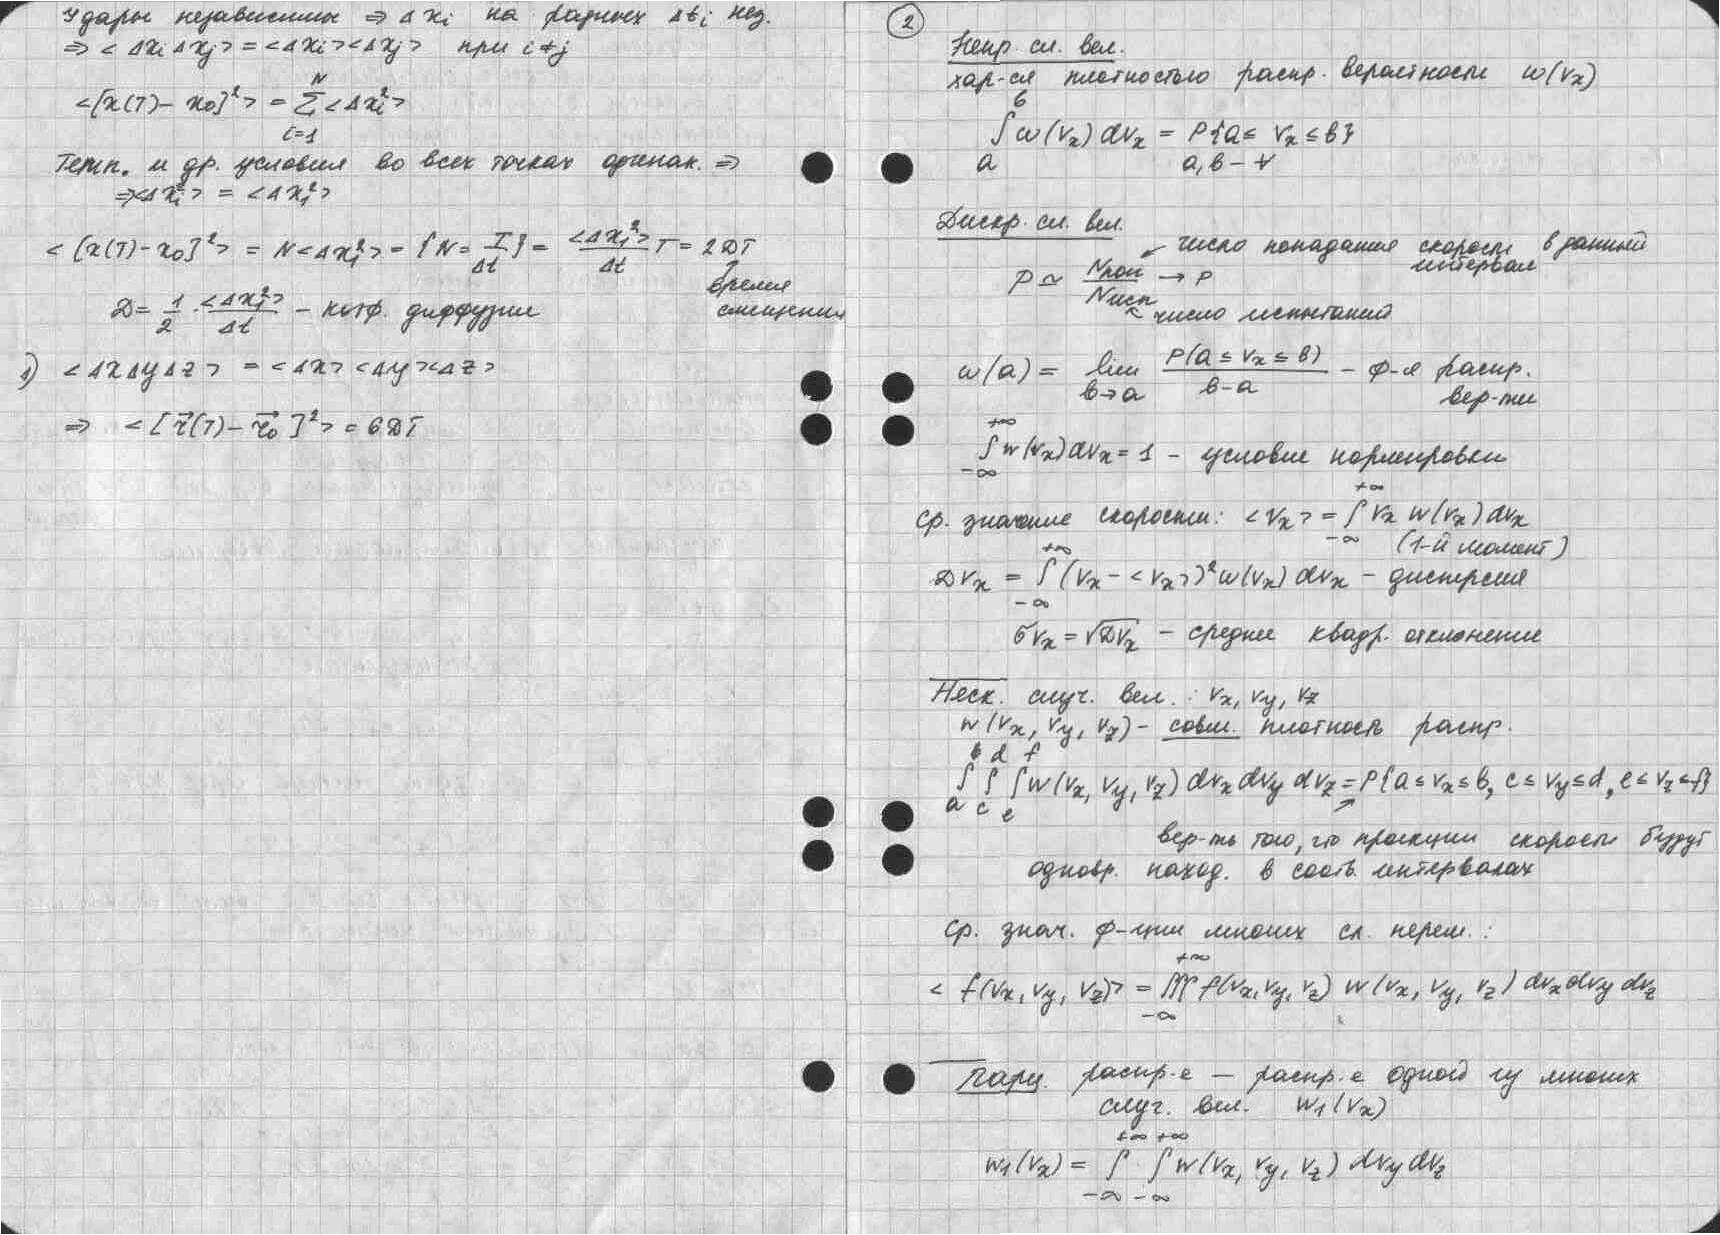 Удары независимы ⇒ Δxᵢ на разных Δtᵢ нез.
⇒ <Δxᵢ Δxⱼ> = <Δxᵢ><Δxⱼ> при i≠j
<[x(T) − x₀]²> = Σ_{i=1}^{N} <Δxᵢ²>
Темп. и др. условия во всех точках одинак. ⇒
⇒ <Δxᵢ²> = <Δx₁²>
<[x(T) − x₀]²> = N<Δx₁²> = {N = T/Δt} = <Δx₁²>/Δt T = 2DT
время
смещения
D = 1/2 · <Δx₁²>/Δt − коэф. диффузии
1) <ΔxΔyΔz> = <Δx><Δy><Δz>
⇒ <[r⃗(T) − r⃗₀]²> = 6DT
2
Непр. сл. вел.
хар-ся плотностью распр. вероятности w(vₓ)
∫_a^b w(vₓ) dvₓ = P{a ≤ vₓ ≤ b}
a, b − ∀
Дискр. сл. вел.
число попадания скорости в данный
интервал
P ≃ Nпоп/Nисп → P
число испытаний
w(a) = lim_{b→a} P(a ≤ vₓ ≤ b)/(b−a) − ф-я распр.
вер-ти
∫_{−∞}^{+∞} w(vₓ) dvₓ = 1 − условие нормировки
Ср. значение скорости: <vₓ> = ∫_{−∞}^{+∞} vₓ w(vₓ) dvₓ
(1-й момент)
Dvₓ = ∫_{−∞}^{+∞} (vₓ − <vₓ>)² w(vₓ) dvₓ − дисперсия
σvₓ = √Dvₓ − среднее квадр. отклонение
Неск. случ. вел.: vₓ, v_y, v_z
w(vₓ, v_y, v_z) − совм. плотность распр.
∫_a^b ∫_c^d ∫_e^f w(vₓ, v_y, v_z) dvₓ dv_y dv_z = P{a ≤ vₓ ≤ b, c ≤ v_y ≤ d, e ≤ v_z ≤ f}
вер-ть того, что проекции скорости будут
одновр. наход. в соотв. интервалах
Ср. знач. ф-ции многих сл. перем.:
<f(vₓ, v_y, v_z)> = ∭_{−∞}^{+∞} f(vₓ, v_y, v_z) w(vₓ, v_y, v_z) dvₓ dv_y dv_z
Парц. распр-е — распр-е одной из многих
случ. вел. w₁(vₓ)
w₁(vₓ) = ∫_{−∞}^{+∞} ∫_{−∞}^{+∞} w(vₓ, v_y, v_z) dv_y dv_z